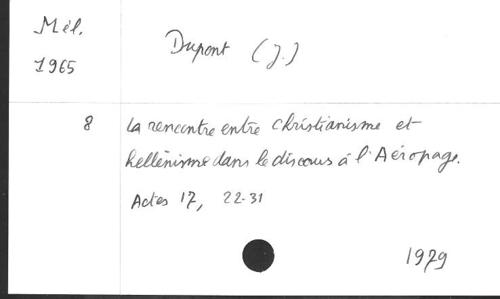 Mél.
1965
Dupont (J.)
8
La rencontre entre christianisme et
hellénisme dans le discours à l'Aéropage.
Actes 17, 22-31
1979